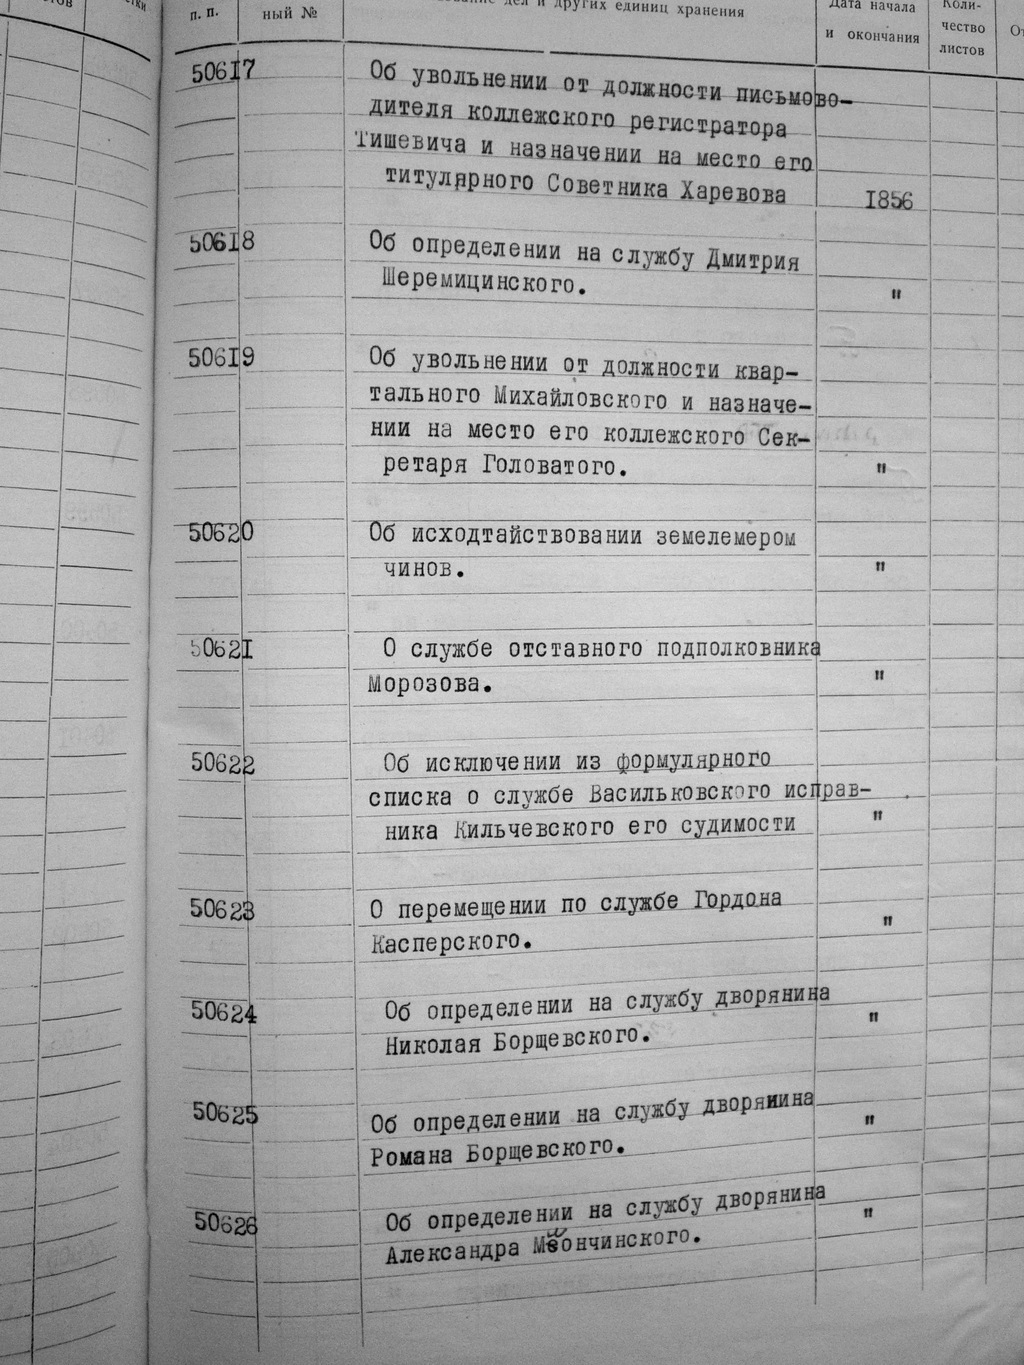 п. п.
ный №
дел и других единиц хранения
Дата начала
и окончания
Коли-
чество
листов
50617 Об увольнении от должности письмово-
дителя коллежского регистратора
Тишевича и назначении на место его
титулярного Советника Харевова 1856
50618 Об определении на службу Дмитрия
Шеремицинского. "
50619 Об увольнении от должности квар-
тального Михайловского и назначе-
нии на место его коллежского Сек-
ретаря Головатого. "
50620 Об исходтайствовании землемером
чинов. "
50621 О службе отставного подполковника
Морозова. "
50622 Об исключении из формулярного
списка о службе Васильковского исправ-
ника Кильчевского его судимости "
50623 О перемещении по службе Гордона
Касперского. "
50624 Об определении на службу дворянина
Николая Борщевского. "
50625 Об определении на службу дворянина
Романа Борщевского. "
50626 Об определении на службу дворянина
Александра "